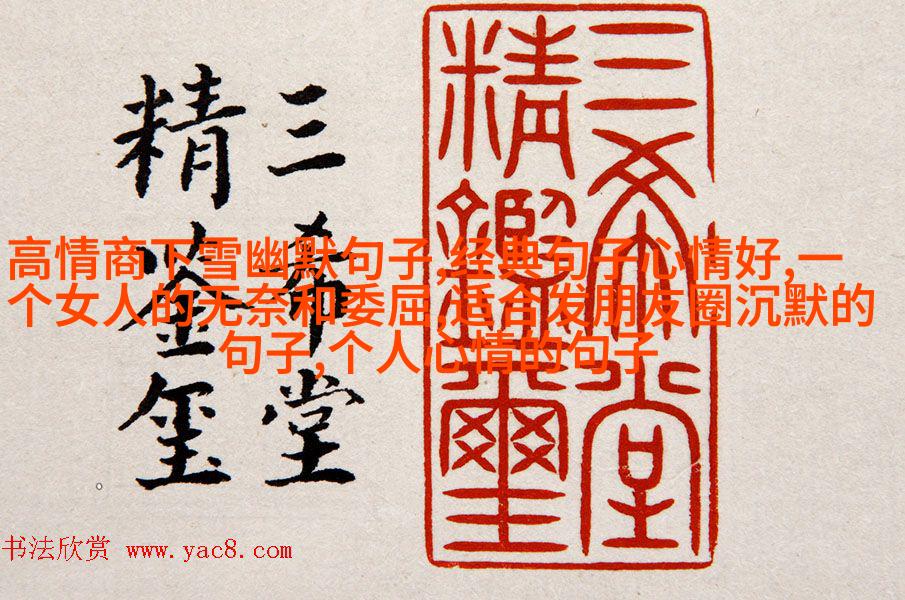 三希堂
精鑑璽
三希堂
精鉴玺
高情商下雪幽默句子,经典句子心情好,一
个女人的无奈和委屈,适合发朋友圈沉默的
句子,个人心情的句子
书法欣赏 www.yac8.com